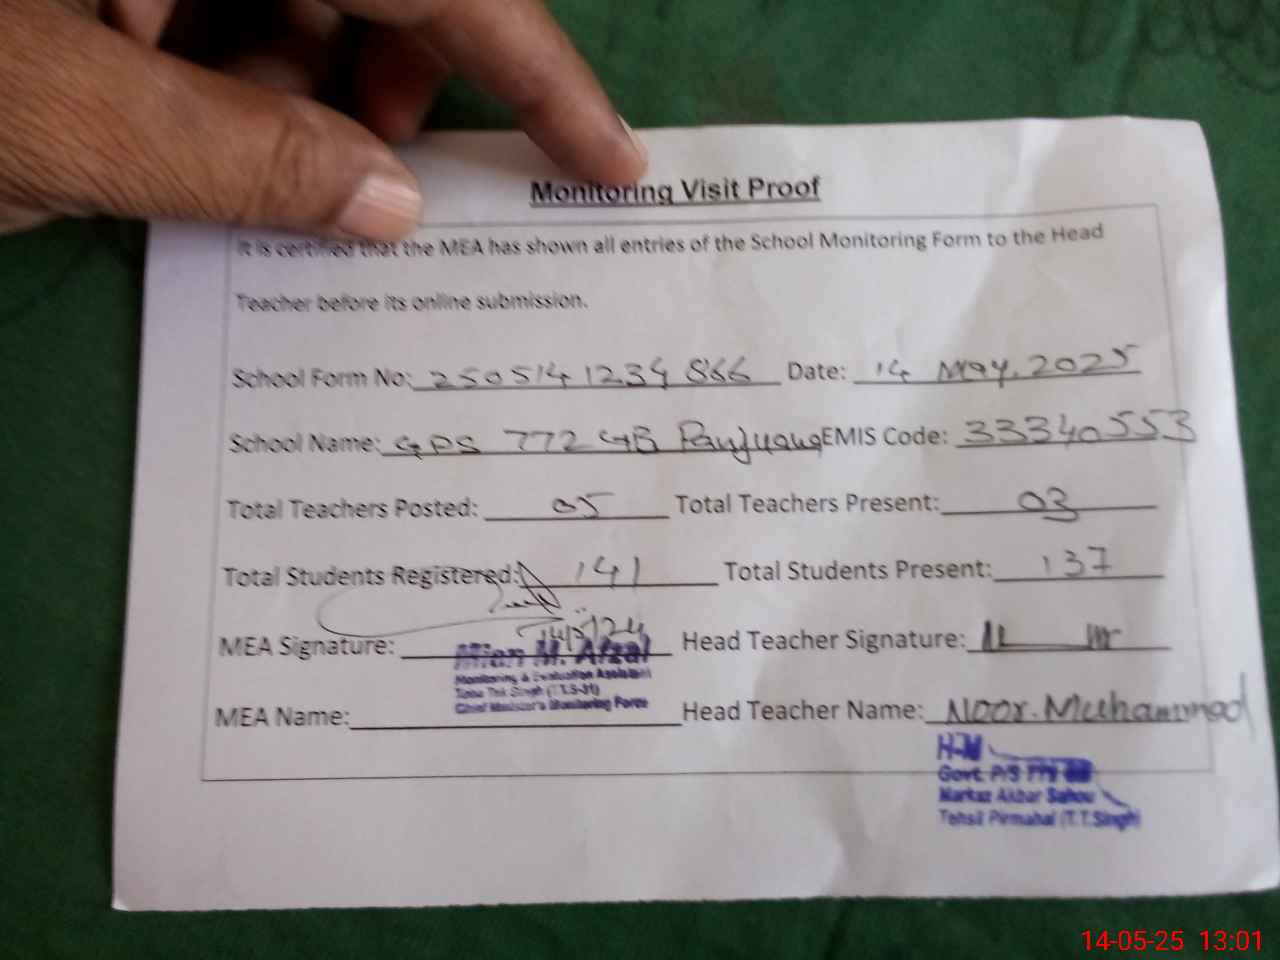 Monitoring Visit Proof
It is certified that the MEA has shown all entries of the School Monitoring Form to the Head
Teacher before its online submission.
School Form No: 250514 1234 866 Date: 14 May, 2025
School Name: GPS 772 GB Panjuana EMIS Code: 33340553
Total Teachers Posted: 05 Total Teachers Present: 03
Total Students Registered: 141 Total Students Present: 137
MEA Signature: Head Teacher Signature:
Mian M. Afzal
Monitoring & Evaluation Assistant
Toba Tek Singh (T.T.S-31)
Chief Minister's Monitoring Force
MEA Name: Head Teacher Name: Noor. Muhammad
H-M
Govt. P/S
Markaz Akbar Sahou
Tehsil Pirmahal (T.T.Singh)
14-05-25 13:01